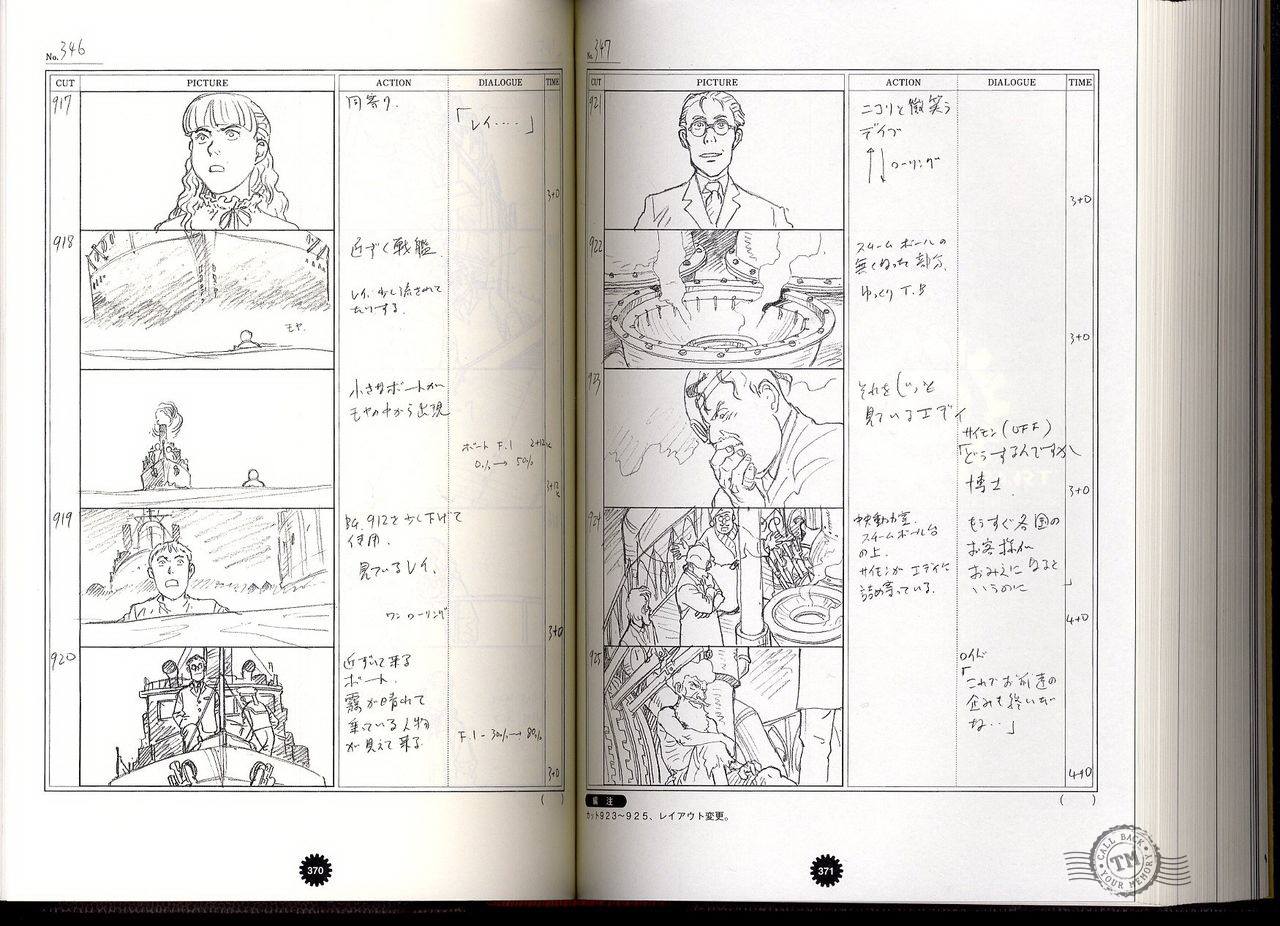 No. 346
CUT PICTURE ACTION DIALOGUE TIME
917
同寄り.
「レイ‥‥」
3+0
918
近ずく戦艦
レイ、少し流されて
モヤ.
小さなボートが
モヤの中から出現
ボート F.I 2+12K
0% → 50%
3+12K
919
BG. 912を少し下げて
使用.
見ているレイ、
ワンローリング
3+0
920
近ずいて来る
ボート.
霧が晴れて
乗っている人物
が見えて来る
F.I - 30% → 80%
3+0
( )
370
No. 347
CUT PICTURE ACTION DIALOGUE TIME
921
ニコリと微笑う
デイブ
ローリング
3+0
922
スチームボールの
無くなった部分.
ゆっくりT.B
3+0
923
それをじっと
見ているエディ
サイモン(OFF)
「どうするんですか
博士.
3+0
924
中央動力室.
スチームボール台
の上.
サイモンがエディに
詰め寄っている.
もうすぐ各国の
お客様が
おみえになると
いうのに
」
4+0
925
ロイド
「これでお前達の
企みも終いだ
な‥」
4+0
( )
備 注
カット923〜925、レイアウト変更。
371
CALL BACK
TM
YOUR MEMORY